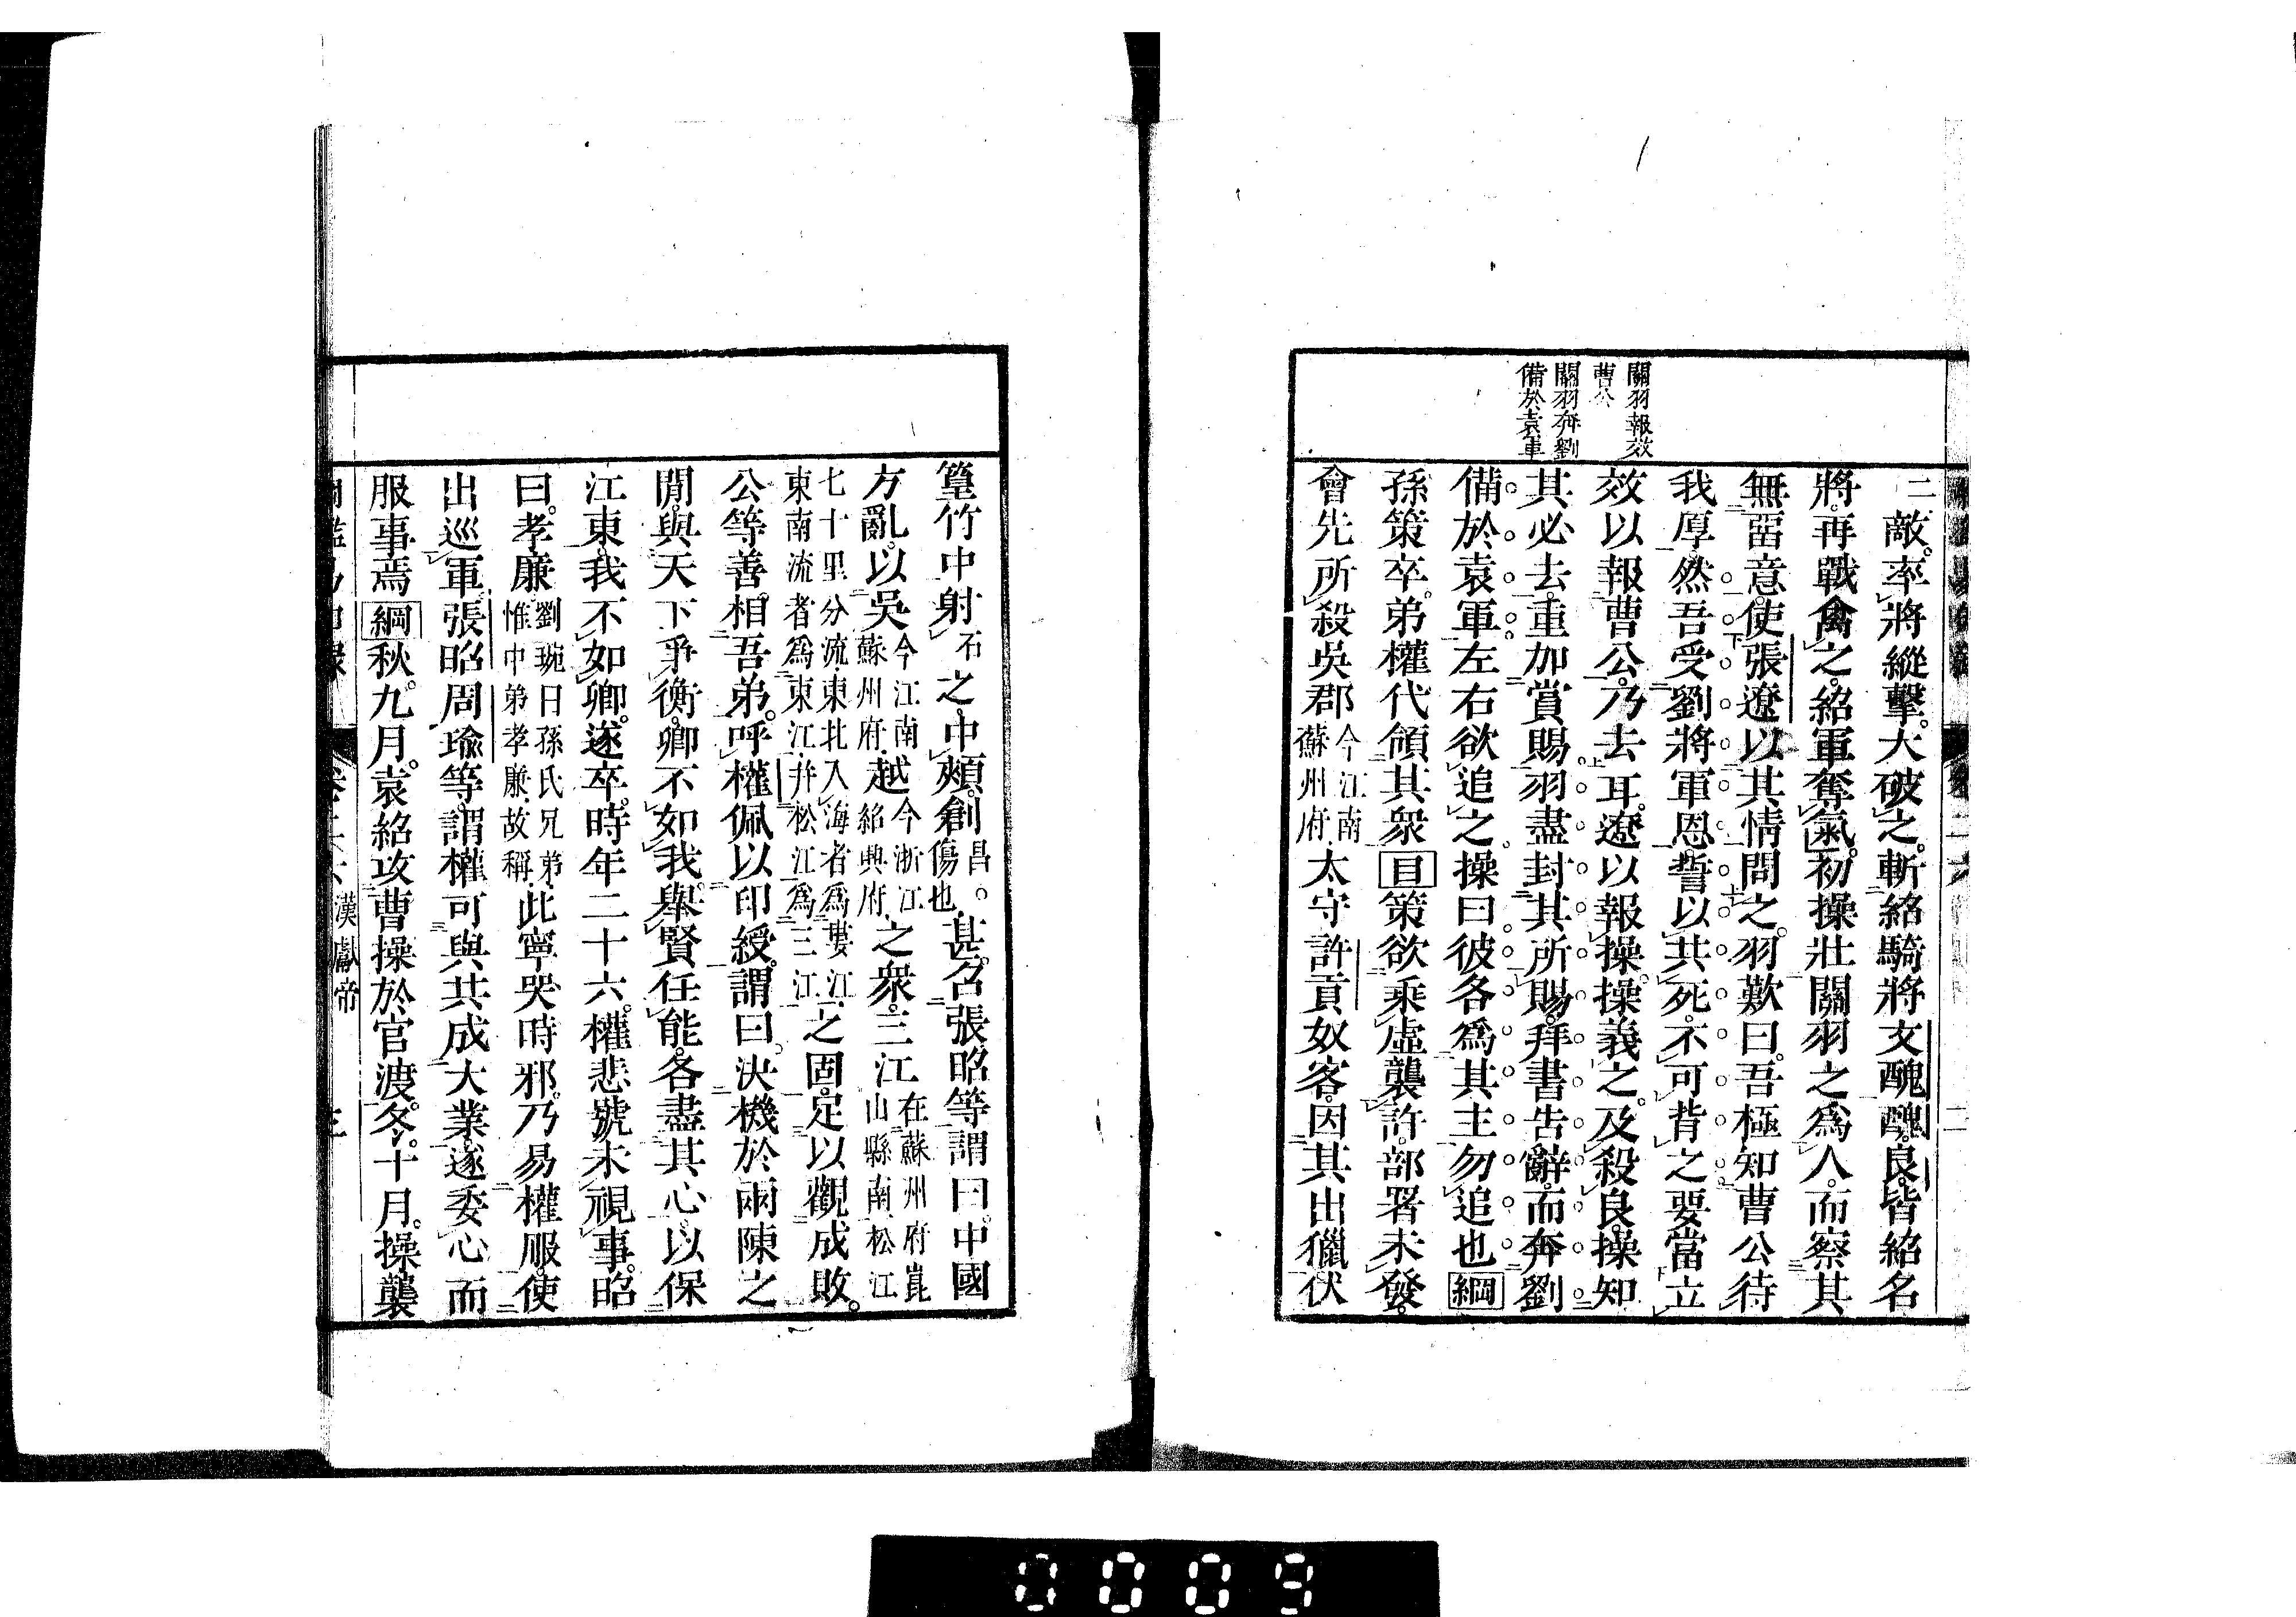 關羽報效
曹公
關羽奔劉
備於袁軍
敵。率將縱擊。大破之。斬紹騎將文醜。醜良。皆紹名
將。再戰禽之。紹軍奪氣。初操壯關羽之爲人。而察其
無畱意。使張遼以其情問之。羽歎曰。吾極知曹公待
我厚。然吾受劉將軍恩。誓以共死。不可背之。要當立
效以報曹公。乃去耳。遼以報操。操義之。及殺良。操知
其必去。重加賞賜。羽盡封其所賜。拜書告辭。而奔劉
備於袁軍。左右欲追之。操曰。彼各爲其主。勿追也綱
孫策卒。弟權代領其衆目策欲乘虛襲許。部署未發。
會先所殺吳郡今江南蘇州府太守許貢奴客。因其出獵。伏
篁竹中射石之。中頰。創昌。傷也。甚。召張昭等謂曰。中國
方亂。以吳今江南蘇州府。越今浙江紹興府。之衆。三江在蘇州府崑山縣南。松江
七十里分流。東北入海者爲婁江。東南流者爲東江。幷松江爲三江。之固。足以觀成敗。
公等善相吾弟。呼權佩以印綬。謂曰。決機於兩陳之
閒。與天下爭衡。卿不如我。舉賢任能。各盡其心。以保
江東。我不如卿。遂卒。時年二十六。權悲號未視事。昭
曰。孝廉。劉琬曰孫氏兄弟。惟中弟孝廉。故稱。此寧哭時邪。乃易權服。使
出巡軍。張昭周瑜等。謂權可與共成大業。遂委心而
服事焉綱秋。九月。袁紹攻曹操於官渡。冬。十月。操襲
漢獻帝
0009